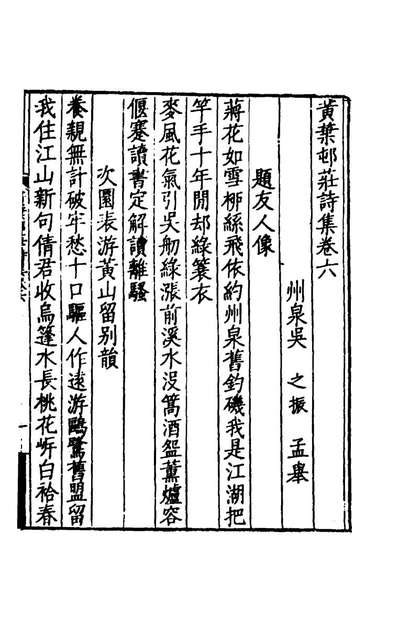 黃葉邨莊詩集卷六
州泉吳 之振 孟舉
題友人像
蔣花如雪栁絲飛依約州泉舊釣磯我是江湖把
竿手十年閒却綠蓑衣
麥風花氣引吳舠綠漲前溪水没篙酒盌薰爐容
偃蹇讀書定解讀離騷
次園表游黃山留别韻
養親無計破牢愁十口驅人作遠游鷗鷺舊盟留
我住江山新句倩君收烏篷水長桃花岸白袷春